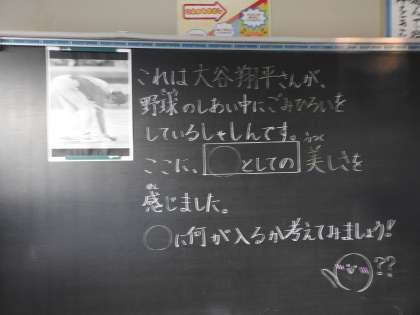 これは大谷翔平さんが、
野球のしあい中にごみひろいを
しているしゃしんです。
ここに、◯としての美しさを
感じました。
◯に何が入るか考えてみましょう!!
??